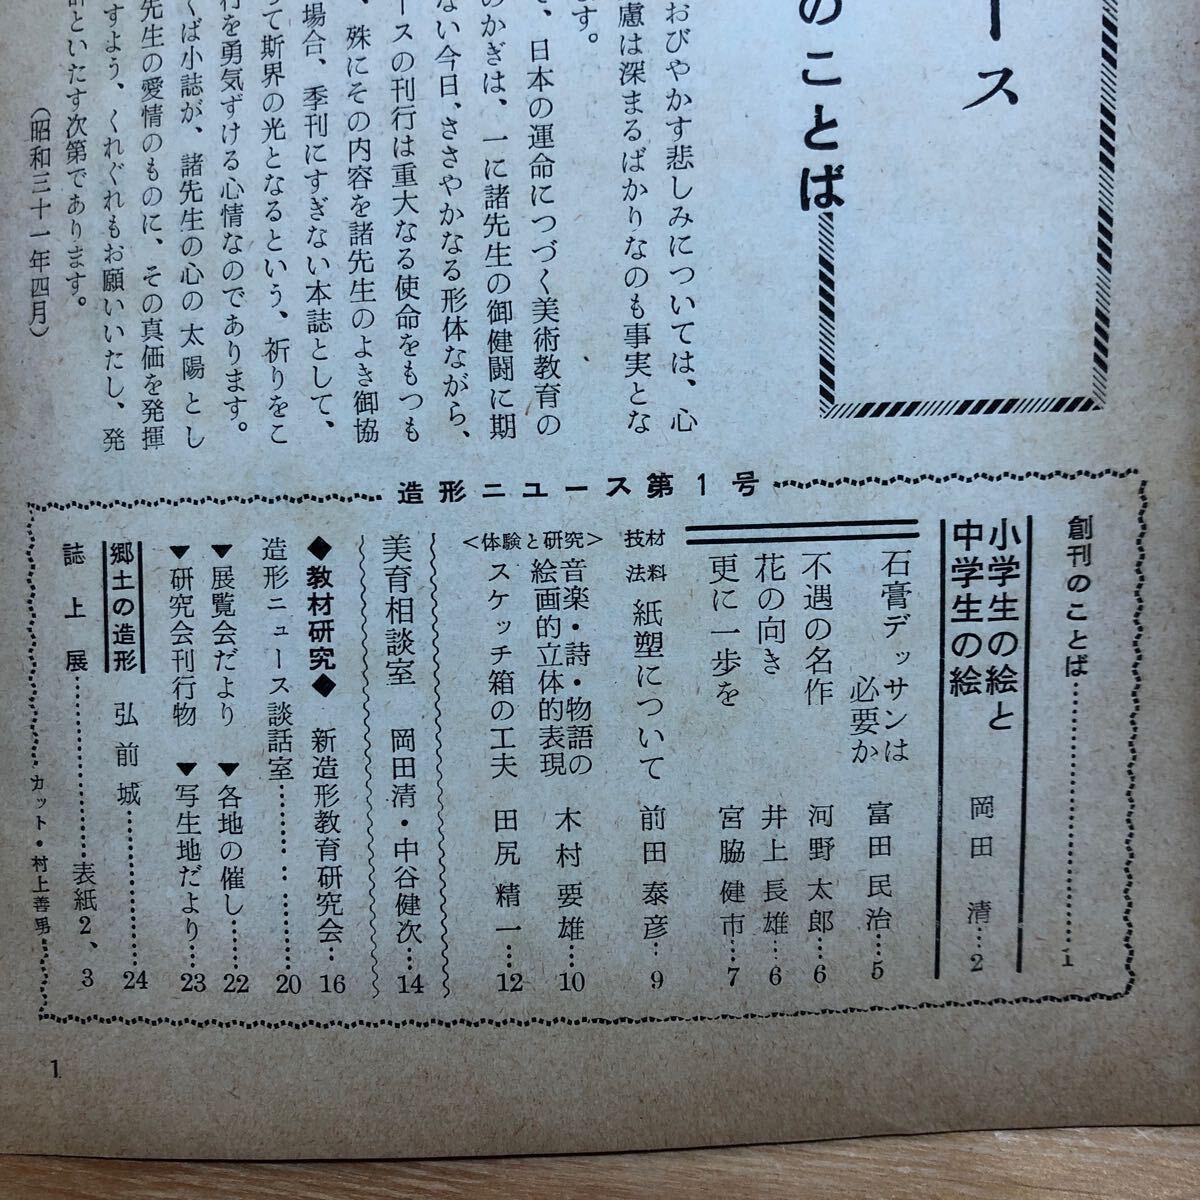 ース
のことば
おびやかす悲しみについては、心
慮は深まるばかりなのも事実とな
ます。
、日本の運命につづく美術教育の
のかぎは、一に諸先生の御健闘に期
ない今日、ささやかなる形体ながら、
ースの刊行は重大なる使命をもつも
、殊にその内容を諸先生のよき御協
場合、季刊にすぎない本誌として、
って斯界の光となるという、祈りをこ
行を勇気ずける心情なのであります。
くば小誌が、諸先生の心の太陽とし
先生の愛情のものに、その真価を発揮
すよう、くれぐれもお願いいたし、発
辞といたす次第であります。
(昭和三十一年四月)
造形ニュース第1号
創刊のことば……………………1
小学生の絵と
中学生の絵 岡田 清…2
石膏デッサンは
必要か 富田民治…5
不遇の名作 河野太郎…6
花の向き 井上長雄…6
更に一歩を 宮脇健市…7
材料
技法 紙塑について 前田泰彦…9
<体験と研究>音楽・詩・物語の
絵画的立体的表現 木村要雄…10
スケッチ箱の工夫 田尻精一…12
美育相談室 岡田清・中谷健次…14
◆教材研究◆ 新造形教育研究会…16
造形ニュース談話室…………20
▼展覧会だより ▼各地の催し……22
▼研究会刊行物 ▼写生地だより…23
郷土の造形 弘前城…………24
誌上展……………表紙2、3
カット・村上善男
1